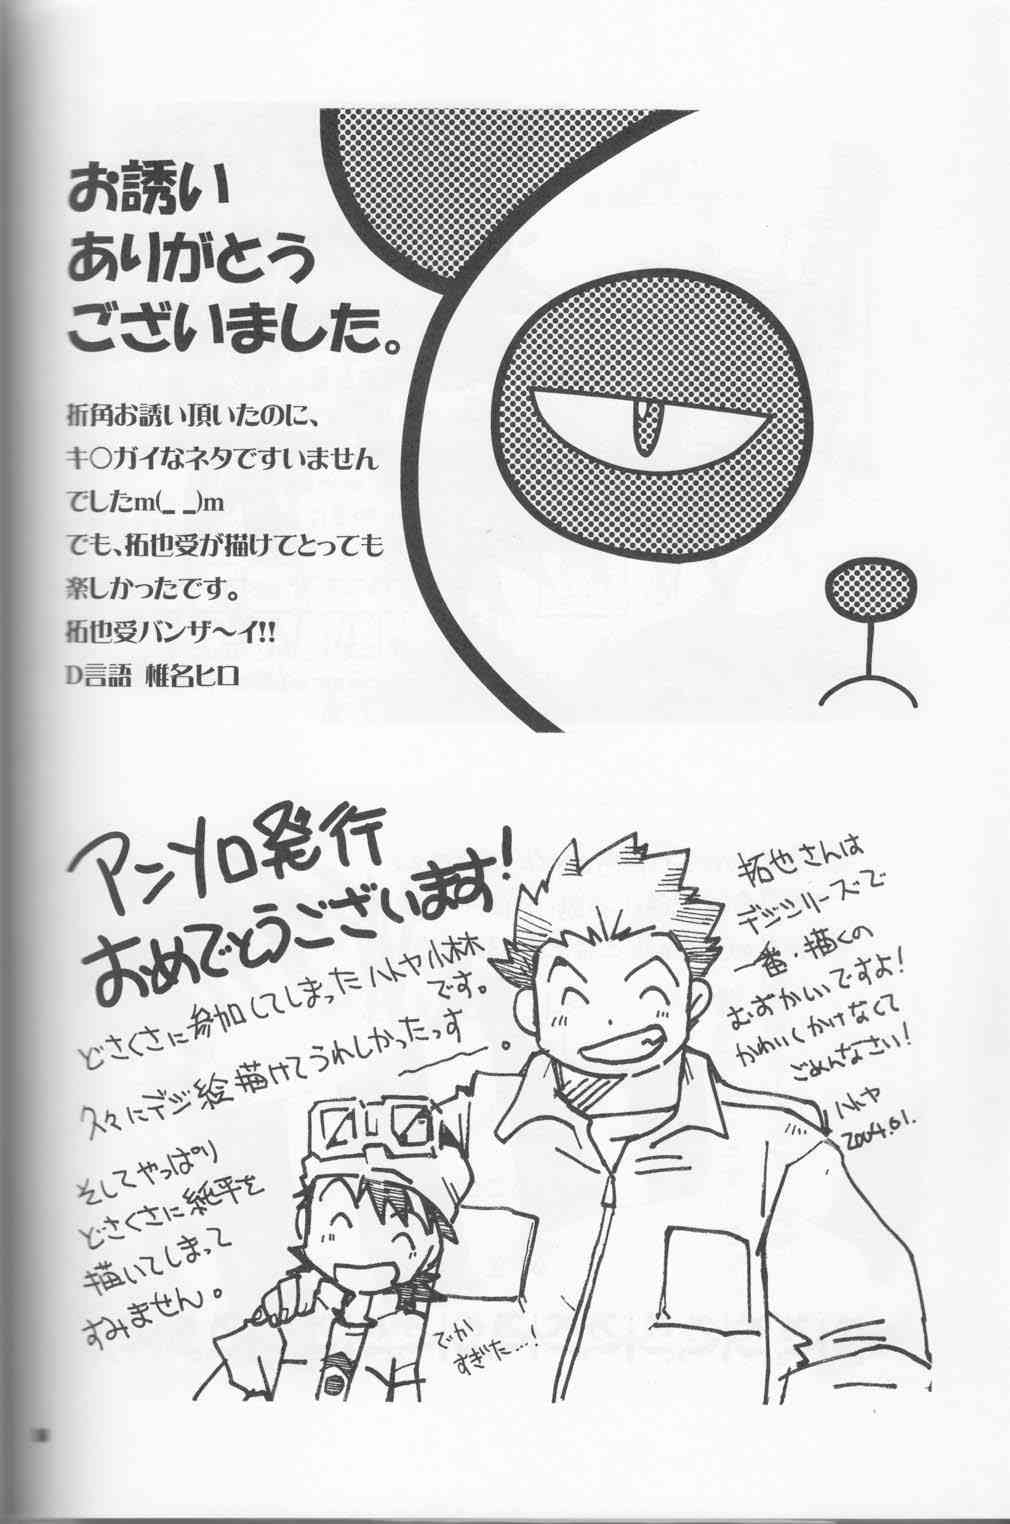 お誘い
ありがとう
ございました。
折角お誘い頂いたのに、
キ○ガイなネタですいません
でしたm(_ _)m
でも、拓也受が描けてとっても
楽しかったです。
拓也受バンザ〜イ!!
D言語 椎名ヒロ
アンソロ発行
おめでとうございます!
どさくさに参加してしまったハトヤ小林
です。
久々にデジ絵描けてうれしかたっす
。
そしてやっぱり
どさくさに純平を
描いてしまって
すみません。
拓也さんは
デジシリーズで
一番・描くの
むずかいですよ!
かわいくかけなくて
ごめんなさい!
ハトヤ
2004.01.
でか
すぎた…!